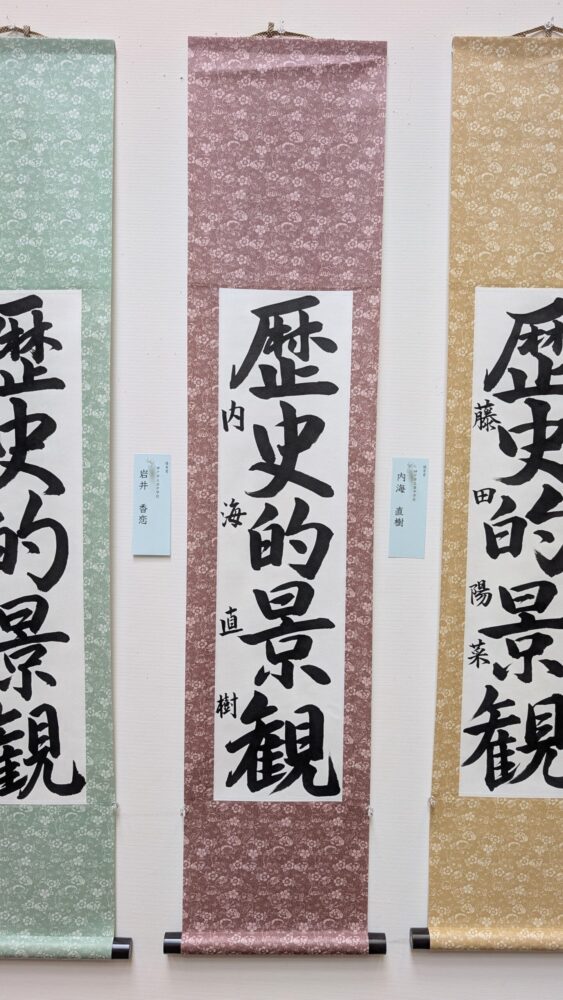 歴史的景観
岩井 香恋
歴史的景観
内海直樹
内海 直樹
歴史的景観
藤田陽菜